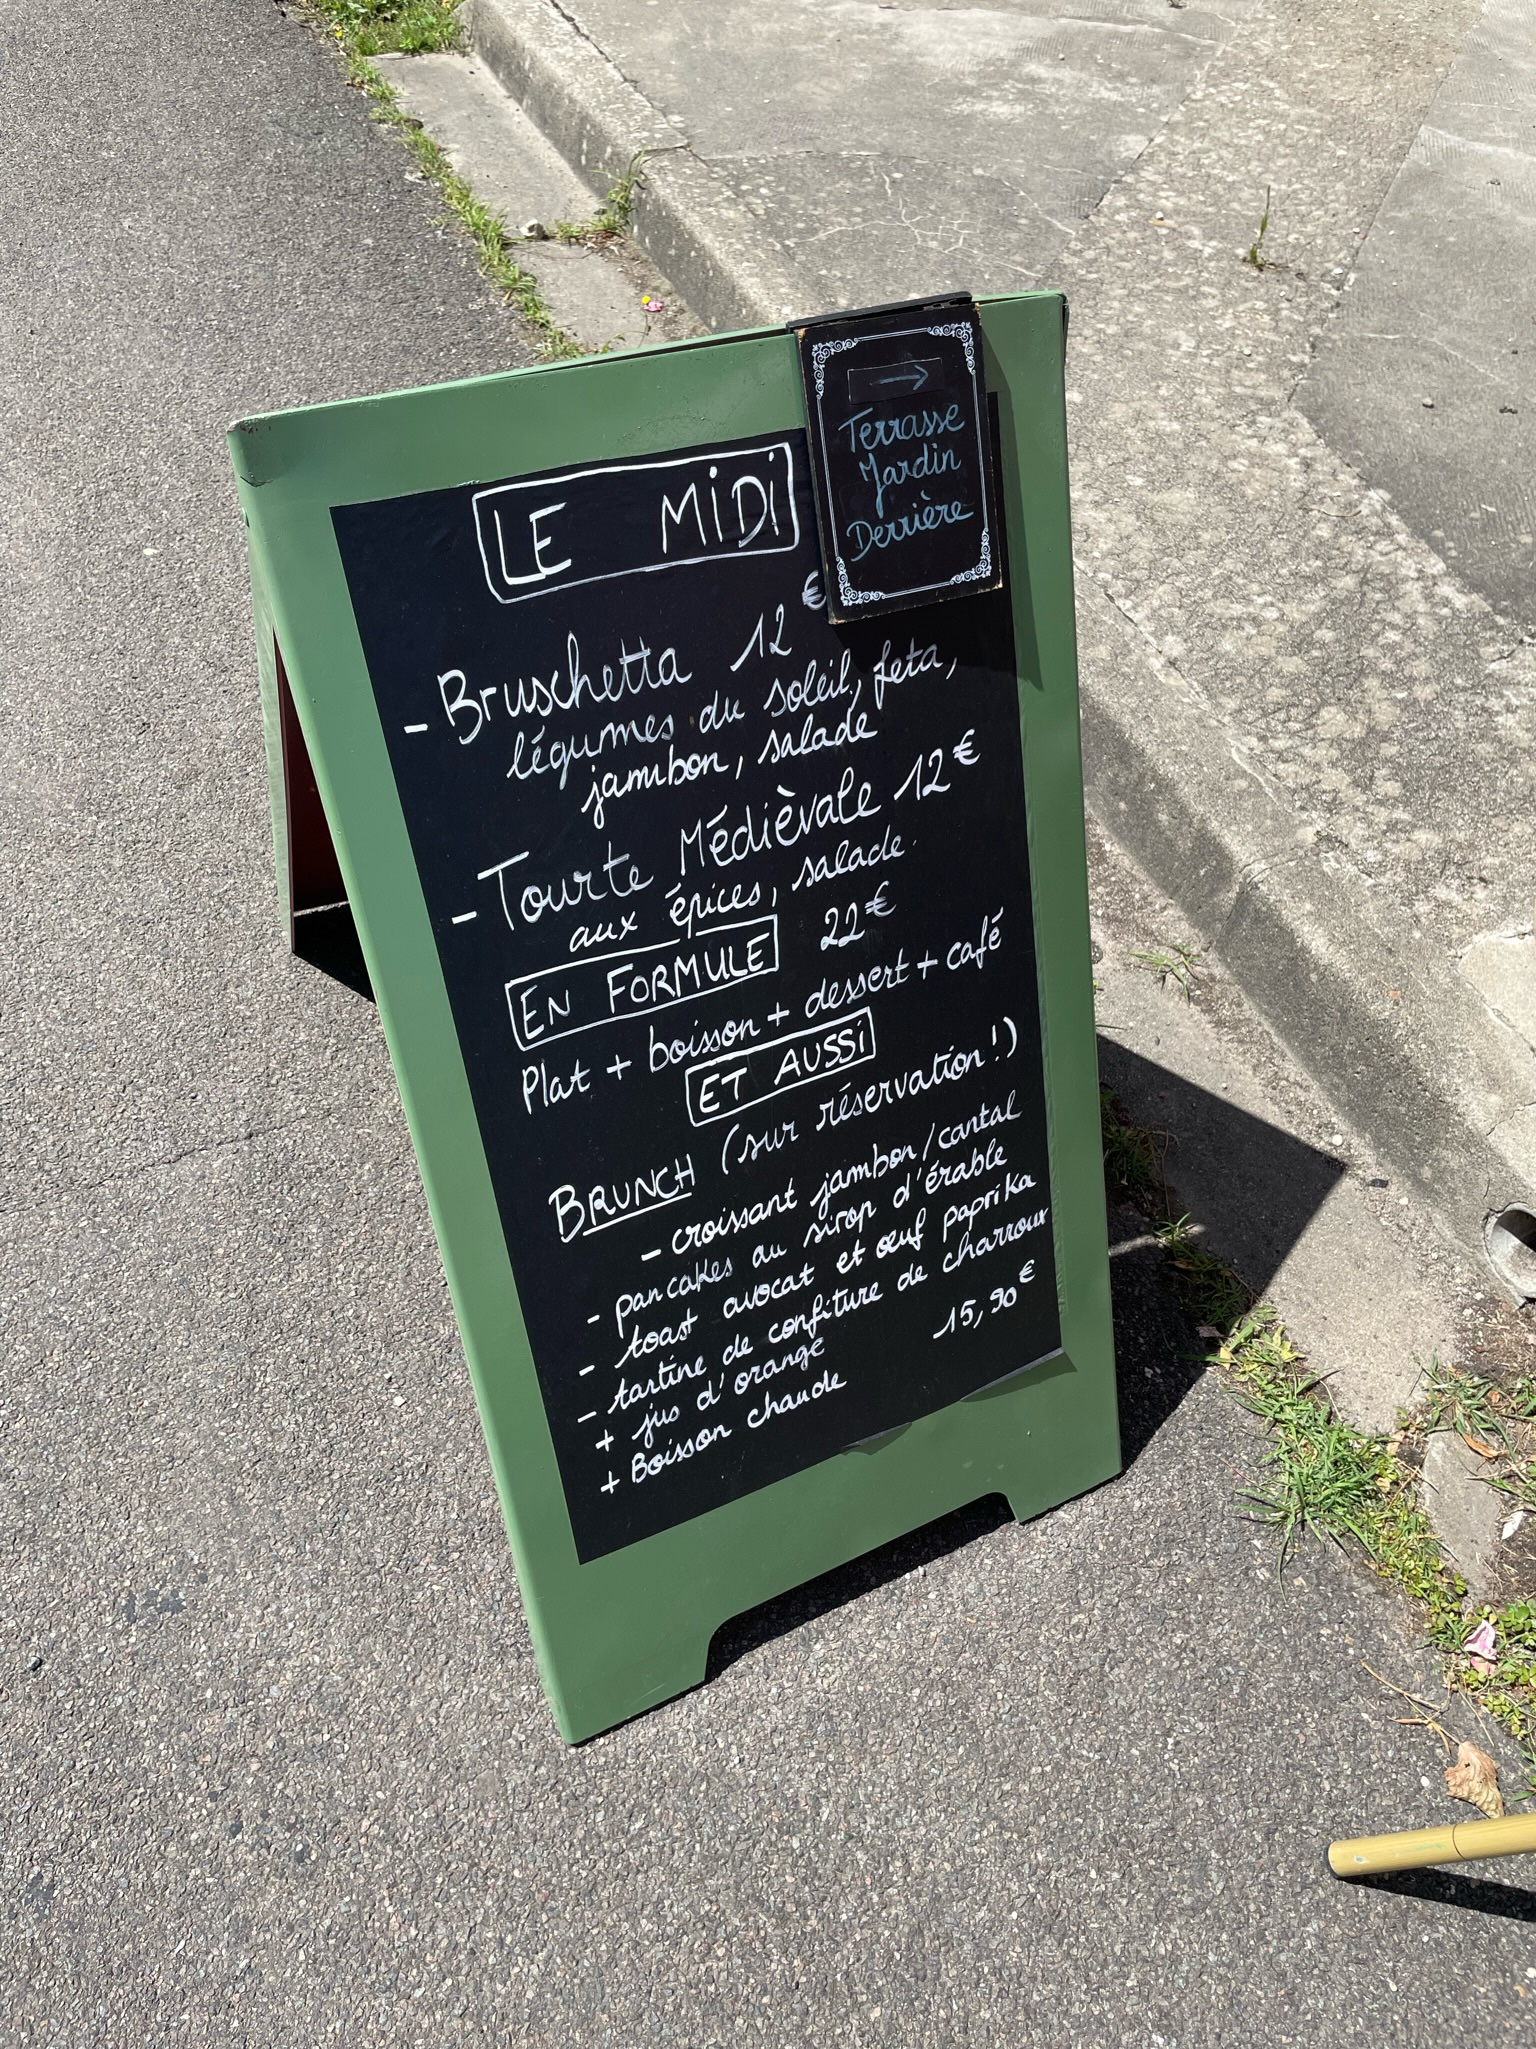 →
Terrasse
Jardin
Derrière
LE MIDI
- Bruschetta 12€
légumes du soleil, feta,
jambon, salade
- Tourte Médièvale 12€
aux épices, salade.
EN FORMULE 22€
Plat + boisson + dessert + café
ET AUSSI
BRUNCH (sur réservation!)
- croissant jambon/cantal
- pancakes au sirop d'érable
- toast avocat et œuf paprika
- tartine de confiture de charroux
+ jus d'orange 15,90€
+ Boisson chaude